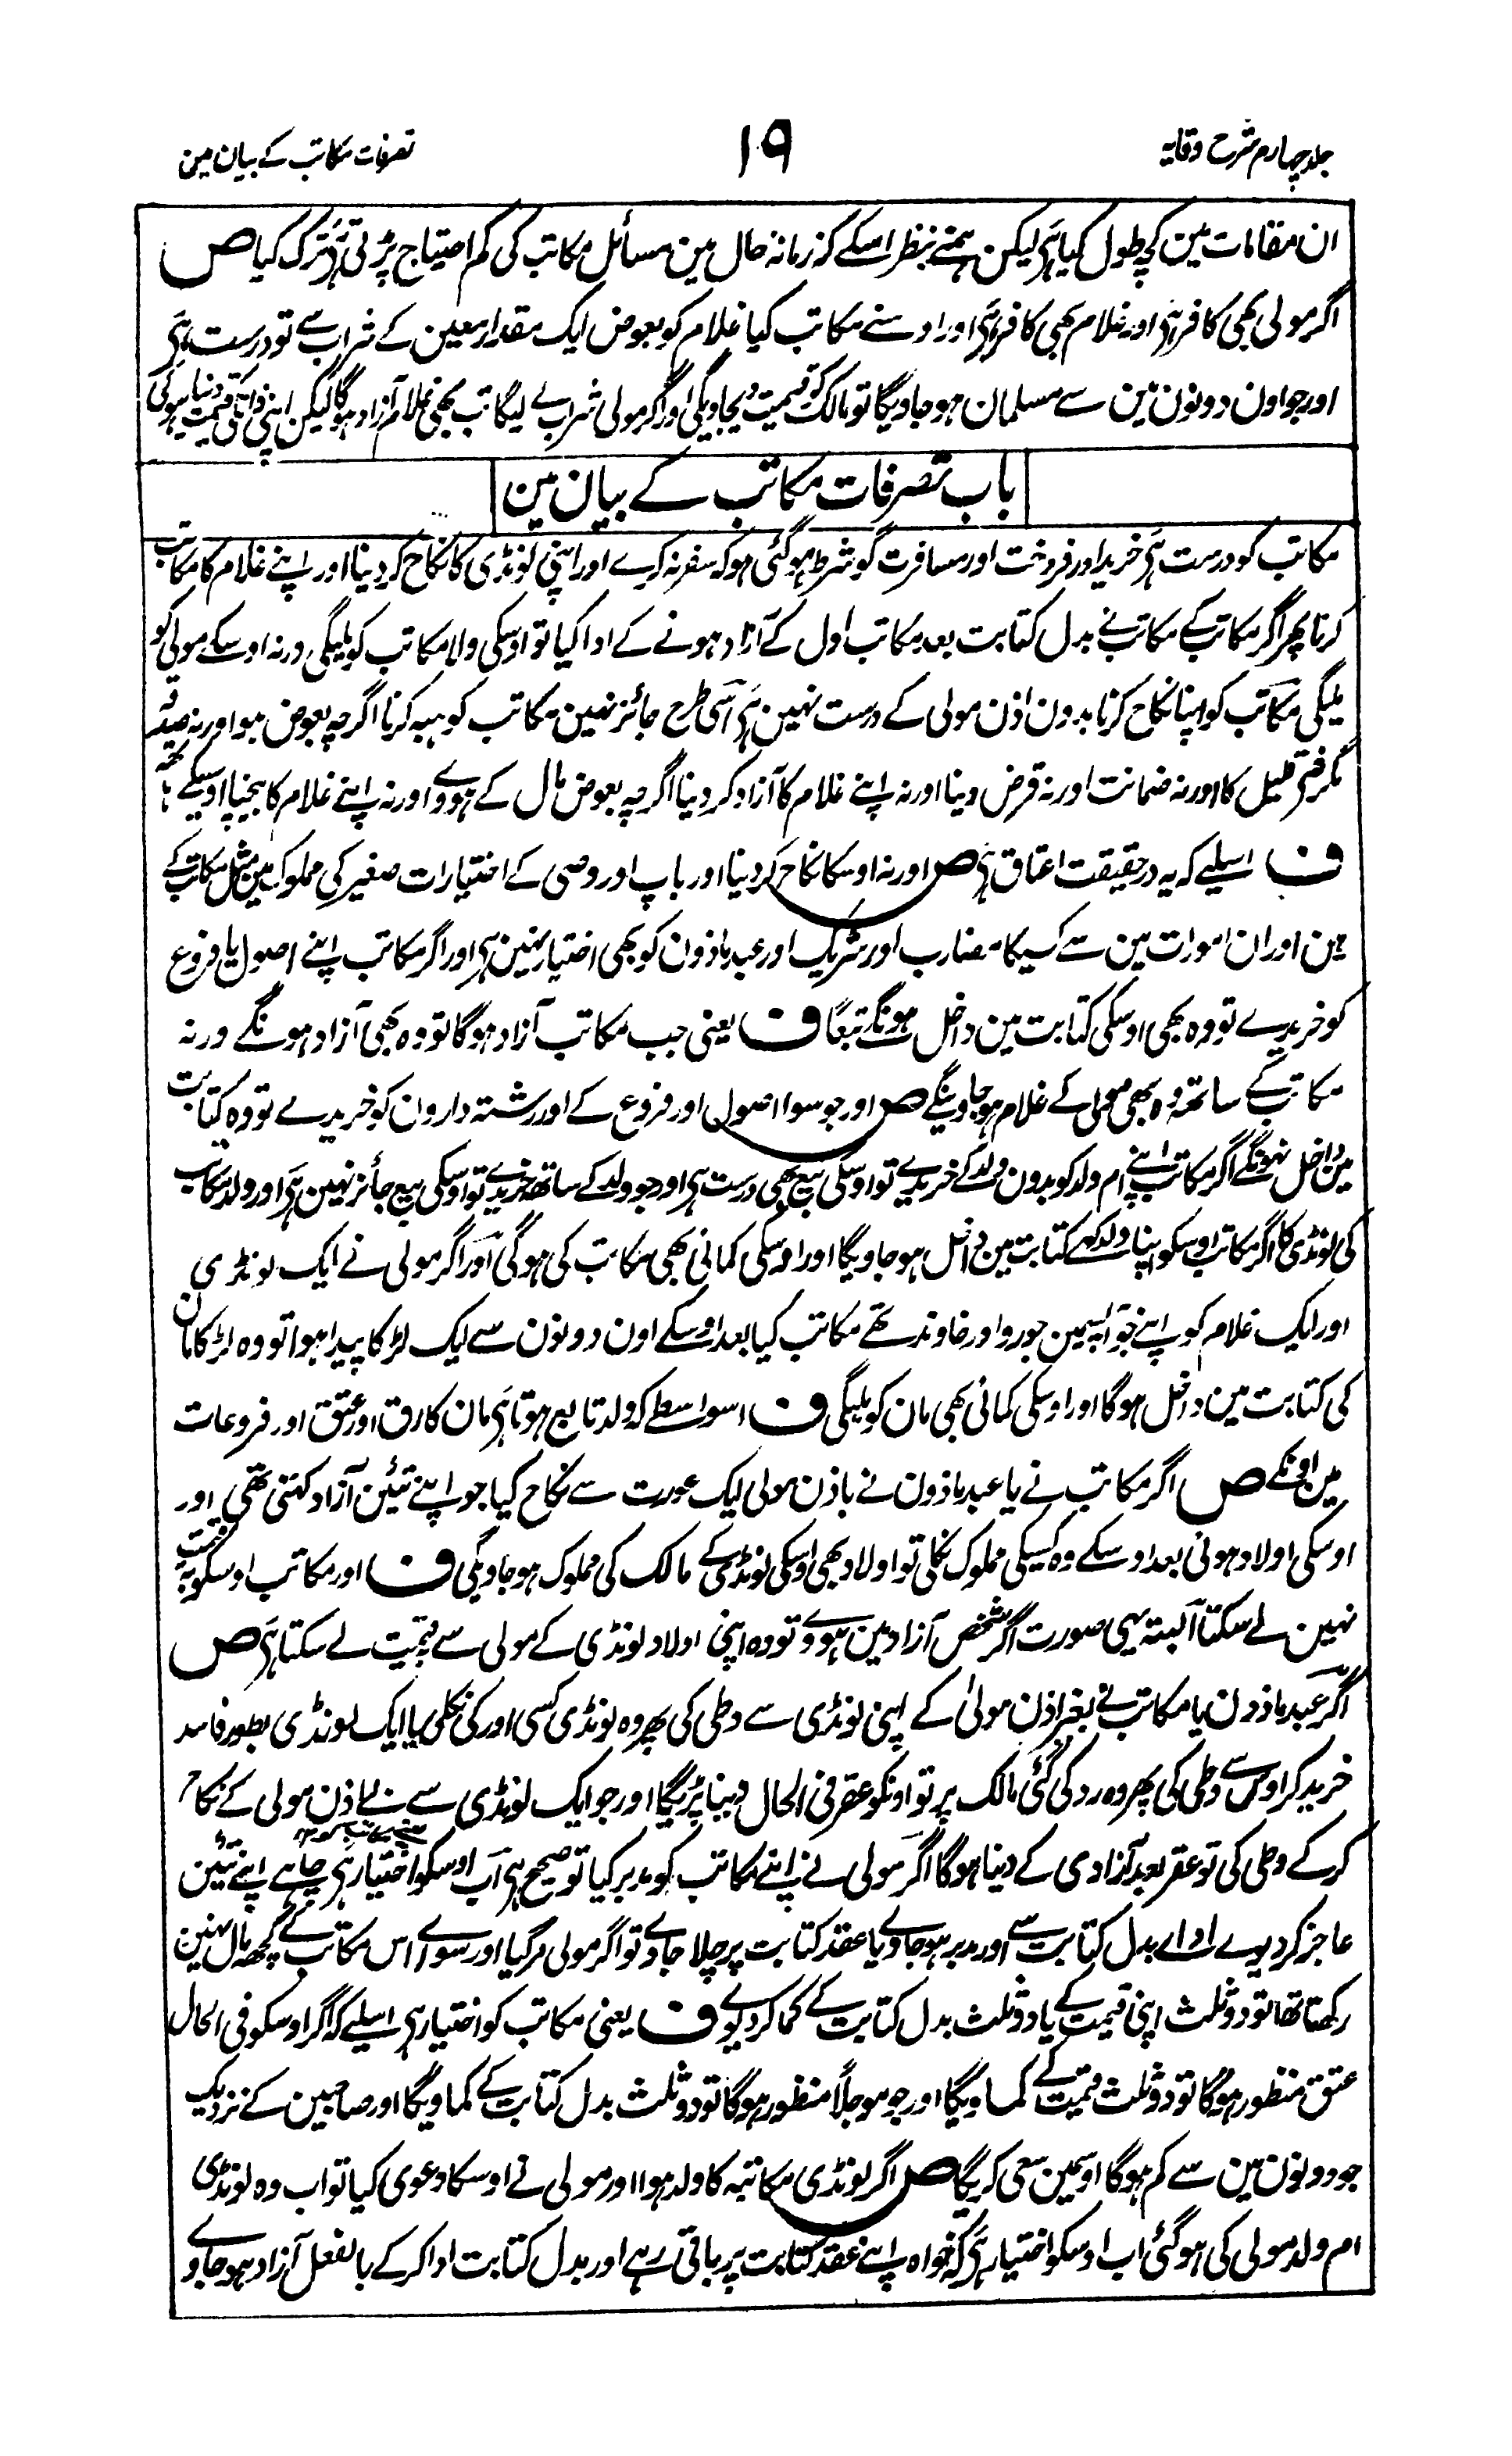 جلد چہارم شرح وقایہ
۱۹
تصرفات مکاتب کے بیان مین
ان مقامات مین کچھ طول کیا ہی لیکن ہمنے بنظر اسکے کہ زمانہ حال مین مسائل مکاتب کی کم احتیاج پڑتی ہی ترک کیا ص
اگر مولی بھی کافر ہی اور غلام بھی کافر ہی اور اوسنے مکاتب کیا غلام کو بعوض ایک مقدار معین کے شراب سے تو درست ہی
اور جو اون دونون مین سے مسلمان ہو جاویگا تو مالک کو قیمت دیجاویگی اور اگر مولی شراب لے لیگا تب بھی غلام آزاد ہوگا لیکن اپنی ذات کی قیمت دینا ہوگی
باب تصرفات مکاتب کے بیان مین
مکاتب کو درست ہی خرید اور فروخت اور مسافرت گو شرط ہوگئی ہو کہ سفر نہ کرے اور اپنی لونڈی کا نکاح کر دینا اور اپنے غلام کا مکاتب
کرنا پھر اگر مکاتب کے مکاتب نے بدل کتابت بعد مکاتب اول کے آزاد ہونے کے ادا کیا تو اوسکی ولا مکاتب کو ملیگی ورنہ اوسکے مولی کو
ملیگی مکاتب کو اپنا نکاح کرنا بدون اذن مولی کے درست نہین ہی اسی طرح جائز نہین مکاتب کو ہبہ کرنا اگرچہ بعوض ہو اور نہ صدقہ
مگر شی قلیل کا اور نہ ضمانت اور نہ قرض دینا اور نہ اپنے غلام کا آزاد کر دینا اگرچہ بعوض مال کے ہووے اور نہ اپنے غلام کا بیچنا اوسیکے ہاتھ
ف اسلیے کہ یہ درحقیقت اعتاق ہی ص اور نہ اوسکا نکاح کر دینا اور باپ اور وصی کے اختیارات صغیر کی مملوک مین مثل مکاتب کے
ہین اور ان امورات مین سے کسیکا مضارب اور شریک اور عبد ماذون کو بھی اختیار نہین ہی اور اگر مکاتب اپنے اصول یا فروع
کو خریدے تو وہ بھی اوسکی کتابت مین داخل ہونگے تبعًا ف یعنی جب مکاتب آزاد ہوگا تو وہ بھی آزاد ہونگے ورنہ
مکاتب کے ساتھ وہ بھی مولی کے غلام ہو جاوینگے ص اور جو سوا اصول اور فروع کے اور رشتہ دارون کو خریدے تو وہ کتابت
مین داخل نہونگے اگر مکاتب اپنے ام ولد کو بدون ولد کے خریدے تو اوسکی بیع بھی درست ہی اور جو ولد کے ساتھ خریدے تو اوسکی بیع جائز نہین ہی اور ولد مکاتب
کی لونڈی کا اگر مکاتب اوسکو اپنا ولد کہے کتابت مین داخل ہو جاویگا اور اوسکی کمائی بھی مکاتب کی ہوگی اور اگر مولی نے ایک لونڈی
اور ایک غلام کو اپنے جو آپسمین جورو اور خاوند تھے مکاتب کیا بعد اوسکے اون دونون سے ایک لڑکا پیدا ہوا تو وہ لڑکا مان
کی کتابت مین داخل ہوگا اور اوسکی کمائی بھی مان کو ملیگی ف اسواسطے کہ ولد تابع ہوتا ہی مان کا رق اور عتق اور فروعات
مین اونکے ص اگر مکاتب نے یا عبد ماذون نے باذن مولی ایک عورت سے نکاح کیا جو اپنے تئین آزاد کہتی تھی اور
اوسکی اولاد ہوئی بعد اوسکے وہ کسیکی مملوک نکلی تو اولاد بھی اوسکی لونڈی کے مالک کی مملوک ہو جاویگی ف اور مکاتب اوسکو بہ قیمت
نہین لے سکتا البتہ یہی صورت اگر شخص آزاد مین ہووے تو وہ اپنی اولاد لونڈی کے مولی سے بقیمت لے سکتا ہی ص
اگر عبد ماذون یا مکاتب نے بغیر اذن مولیٰ کے اپنی لونڈی سے وطی کی پھر وہ لونڈی کسی اور کی نکلی یا ایک لونڈی بطور فاسد
خرید کر اوس سے وطی کی پھر وہ رد کی گئی مالک پر تو اونکو عقر فی الحال دینا پڑیگا اور جو ایک لونڈی سے بے اذن مولی کے نکاح
کرکے وطی کی تو عقر بعد آزادی کے دینا ہوگا اگر مولی نے اپنے مکاتب کو مدبر کیا تو صحیح ہی اب اوسکو اختیار ہی چاہے اپنے تئین
عاجز کر دیوے اداے بدل کتابت سے اور مدبر ہو جاوے یا عقد کتابت پر چلا جاوے تو اگر مولی مر گیا اور سواے اس مکاتب کے کچھ مال نہین
رکھتا تھا تو دو ثلث اپنی قیمت کے یا دو ثلث بدل کتابت کے کما کر دیوے ف یعنی مکاتب کو اختیار ہی اسلیے کہ اگر اوسکو فی الحال
عتق منظور ہوگا تو دو ثلث قیمت کے کماویگا اور جو موجلًا منظور ہوگا تو دو ثلث بدل کتابت کے کماویگا اور صاحبین کے نزدیک
جو دونون مین سے کم ہوگا اوسمین سعی کریگا ص اگر لونڈی مکاتبہ کا ولد ہوا اور مولی نے اوسکا دعوی کیا تو اب وہ لونڈی
ام ولد مولی کی ہوگئی اب اوسکو اختیار ہی کہ خواہ اپنے عقد کتابت پر باقی رہے اور بدل کتابت ادا کرکے بالفعل آزاد ہو جاوے